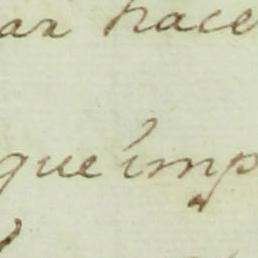 ar hace
que imp